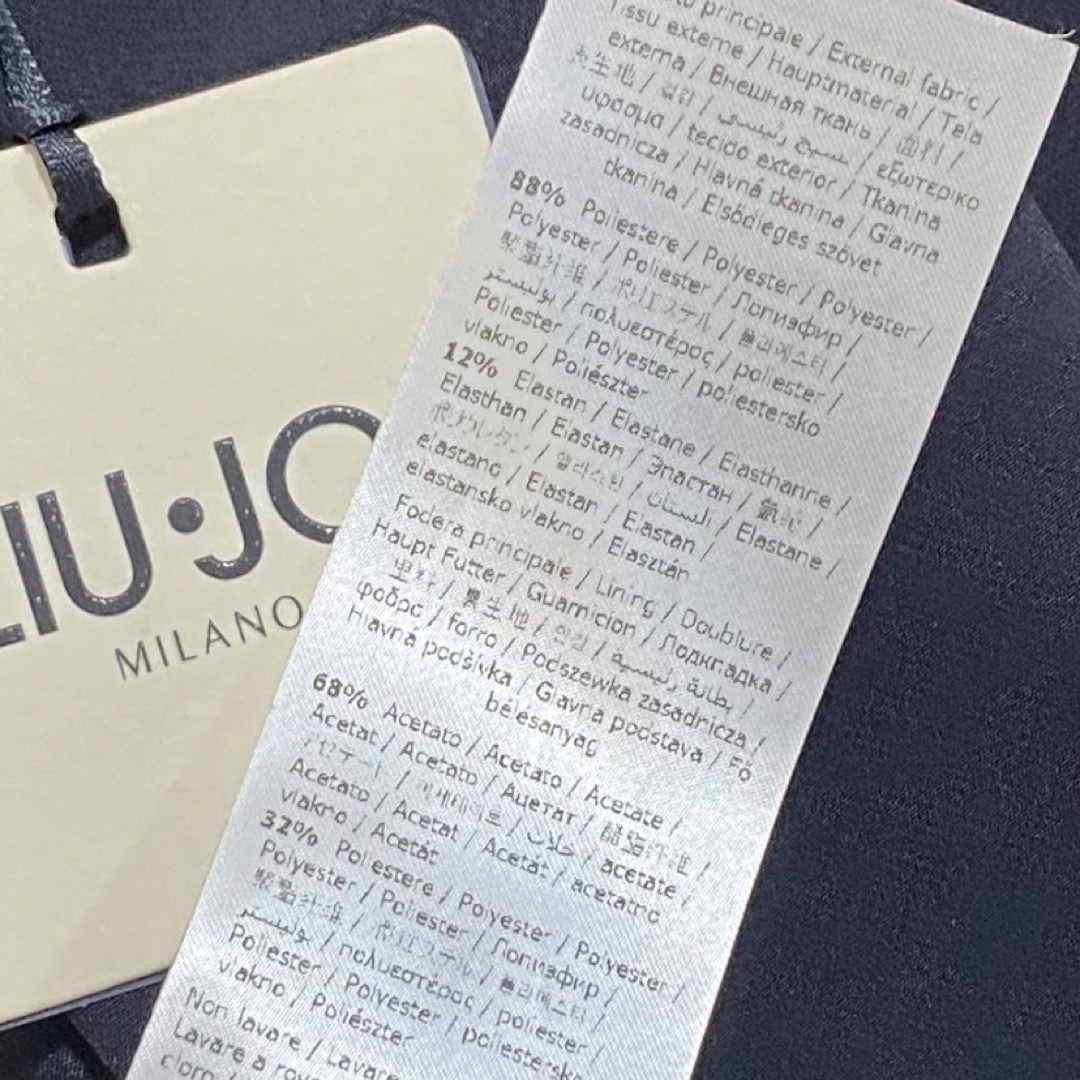 LIU·JO
MILANO
principale / External fabric /
Tissu externe / Hauptmaterial / Tela
externa / Внешная ткань / 面料 /
表生地 / 겉감 / نسيج رئيسي / εξωτερικο
υφασμα / tecido exterior / Tkanina
zasadnicza / Hlavná tkanina / Glavna
tkanina / Elsődleges szövet
88% Poliestere / Polyester / Polyester /
Polyester / Poliester / Полиэфир /
聚酯纤维 / ポリエステル / 폴리에스터 /
بوليستر / πολυεστέρας / poliester /
Poliester / Polyester / poliestersko
vlakno / Poliészter
12% Elastan / Elastane / Elasthanne /
Elasthan / Elastan / Эластан / 氨纶 /
ポリウレタン / 엘라스틴 / الستان / Elastane /
elastano / Elastan / Elastan /
elastansko vlakno / Elasztán
Fodera principale / Lining / Doublure /
Haupt Futter / Guarnicion / Подкладка /
里料 / 裏生地 / 안감 / بطانة رئيسية /
φοδρα / forro / Podszewka zasadnicza /
Hlavná podšívka / Glavna podstava / Fő
bélésanyag
68% Acetato / Acetato / Acetate /
Acetat / Acetato / Ацетат / 醋酯纤维 /
アセテート / 아세테이트 / خلات / acetate /
Acetato / Acetat / Acetát / acetatno
vlakno / Acetát
32% Poliestere / Polyester / Polyester /
Polyester / Poliester / Полиэфир /
聚酯纤维 / ポリエステル / 폴리에스터 /
بوليستر / πολυεστέρας / poliester /
Poliester / Polyester / poliestersko
vlakno / Poliészter
Non lavare / Lavare
Lavare a